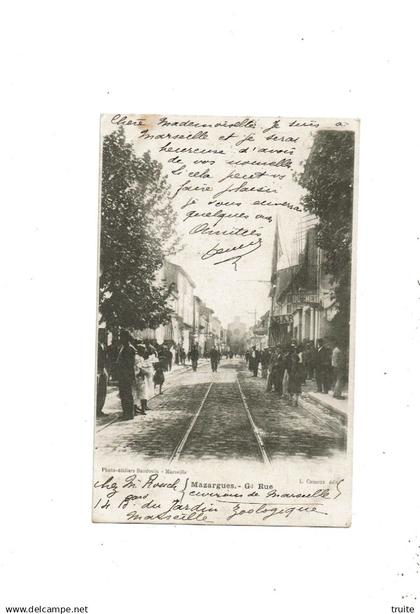 Chère Mademoiselle je suis à
Marseille et je serai
heureuse d'avoir
de vos nouvelle
si cela peut vs
faire plaisir
je vous enverrai
quelques vues
Amitiés
Photo-Ateliers Baudouin - Marseille
L. Camoux édit
Mazargues. - Gde Rue
chez Mr Rouch
environs de Marseille
14 B. du Jardin Zoologique
Marseille
delcampe.net
truite